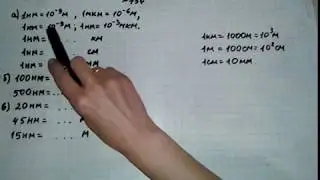 а) 1нм = 10⁻⁹м, 1мкм = 10⁻⁶м,
1нм = 10⁻⁹м; 1нм = 10⁻³мкм.
1нм = ... км
1нм = см
1нм = м
б) 100нм = ...
500нм = ... м
в) 20нм = ... м
45нм = ... м
15нм = ... м
1км = 1000м = 10³м
1м = 100см = 10²см
1см = 10мм